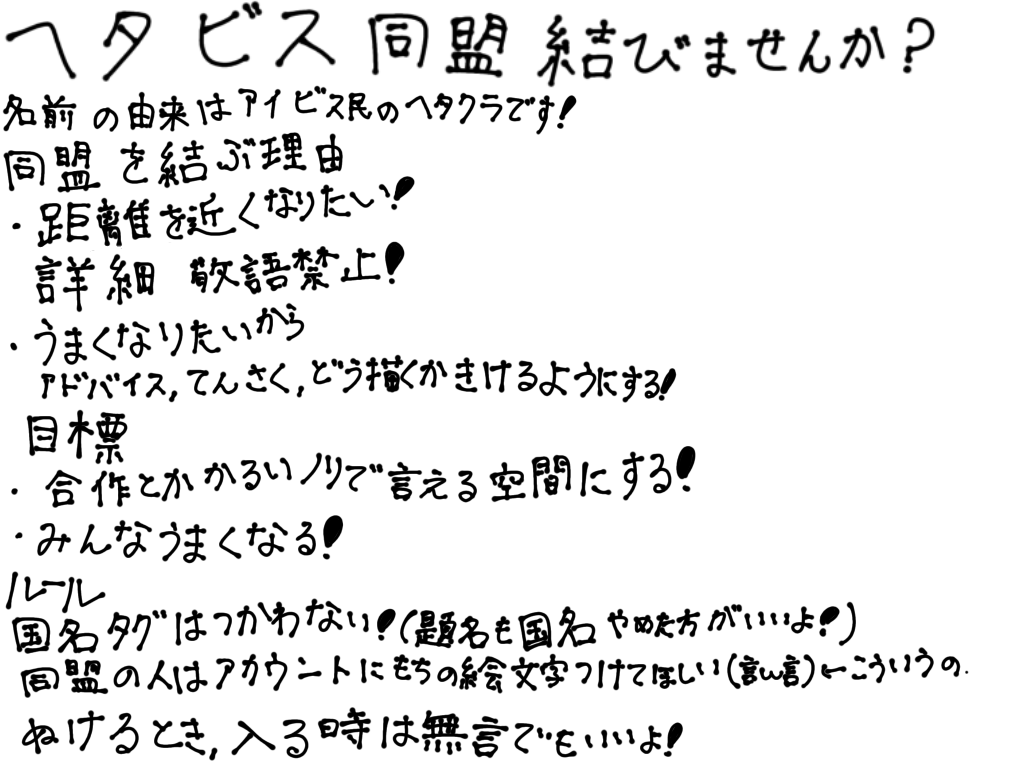 ヘタビス同盟結びませんか?
名前の由来はアイビス民のヘタクラです!
同盟を結ぶ理由
・距離を近くなりたい!
詳細 敬語禁止!
・うまくなりたいから
アドバイス,てんさく,どう描くかきけるようにする!
目標
・合作とかかるいノリで言える空間にする!
・みんなうまくなる!
ルール
国名タグはつかわない!(題名も国名やめた方がいいよ!)
同盟の人はアカウントにもちの絵文字つけてほしい(言ω言)←こういうの.
ぬけるとき,入る時は無言でもいいよ!